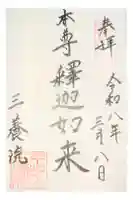 奉拝
令和八年三月八日
本尊釋迦如来
三養院